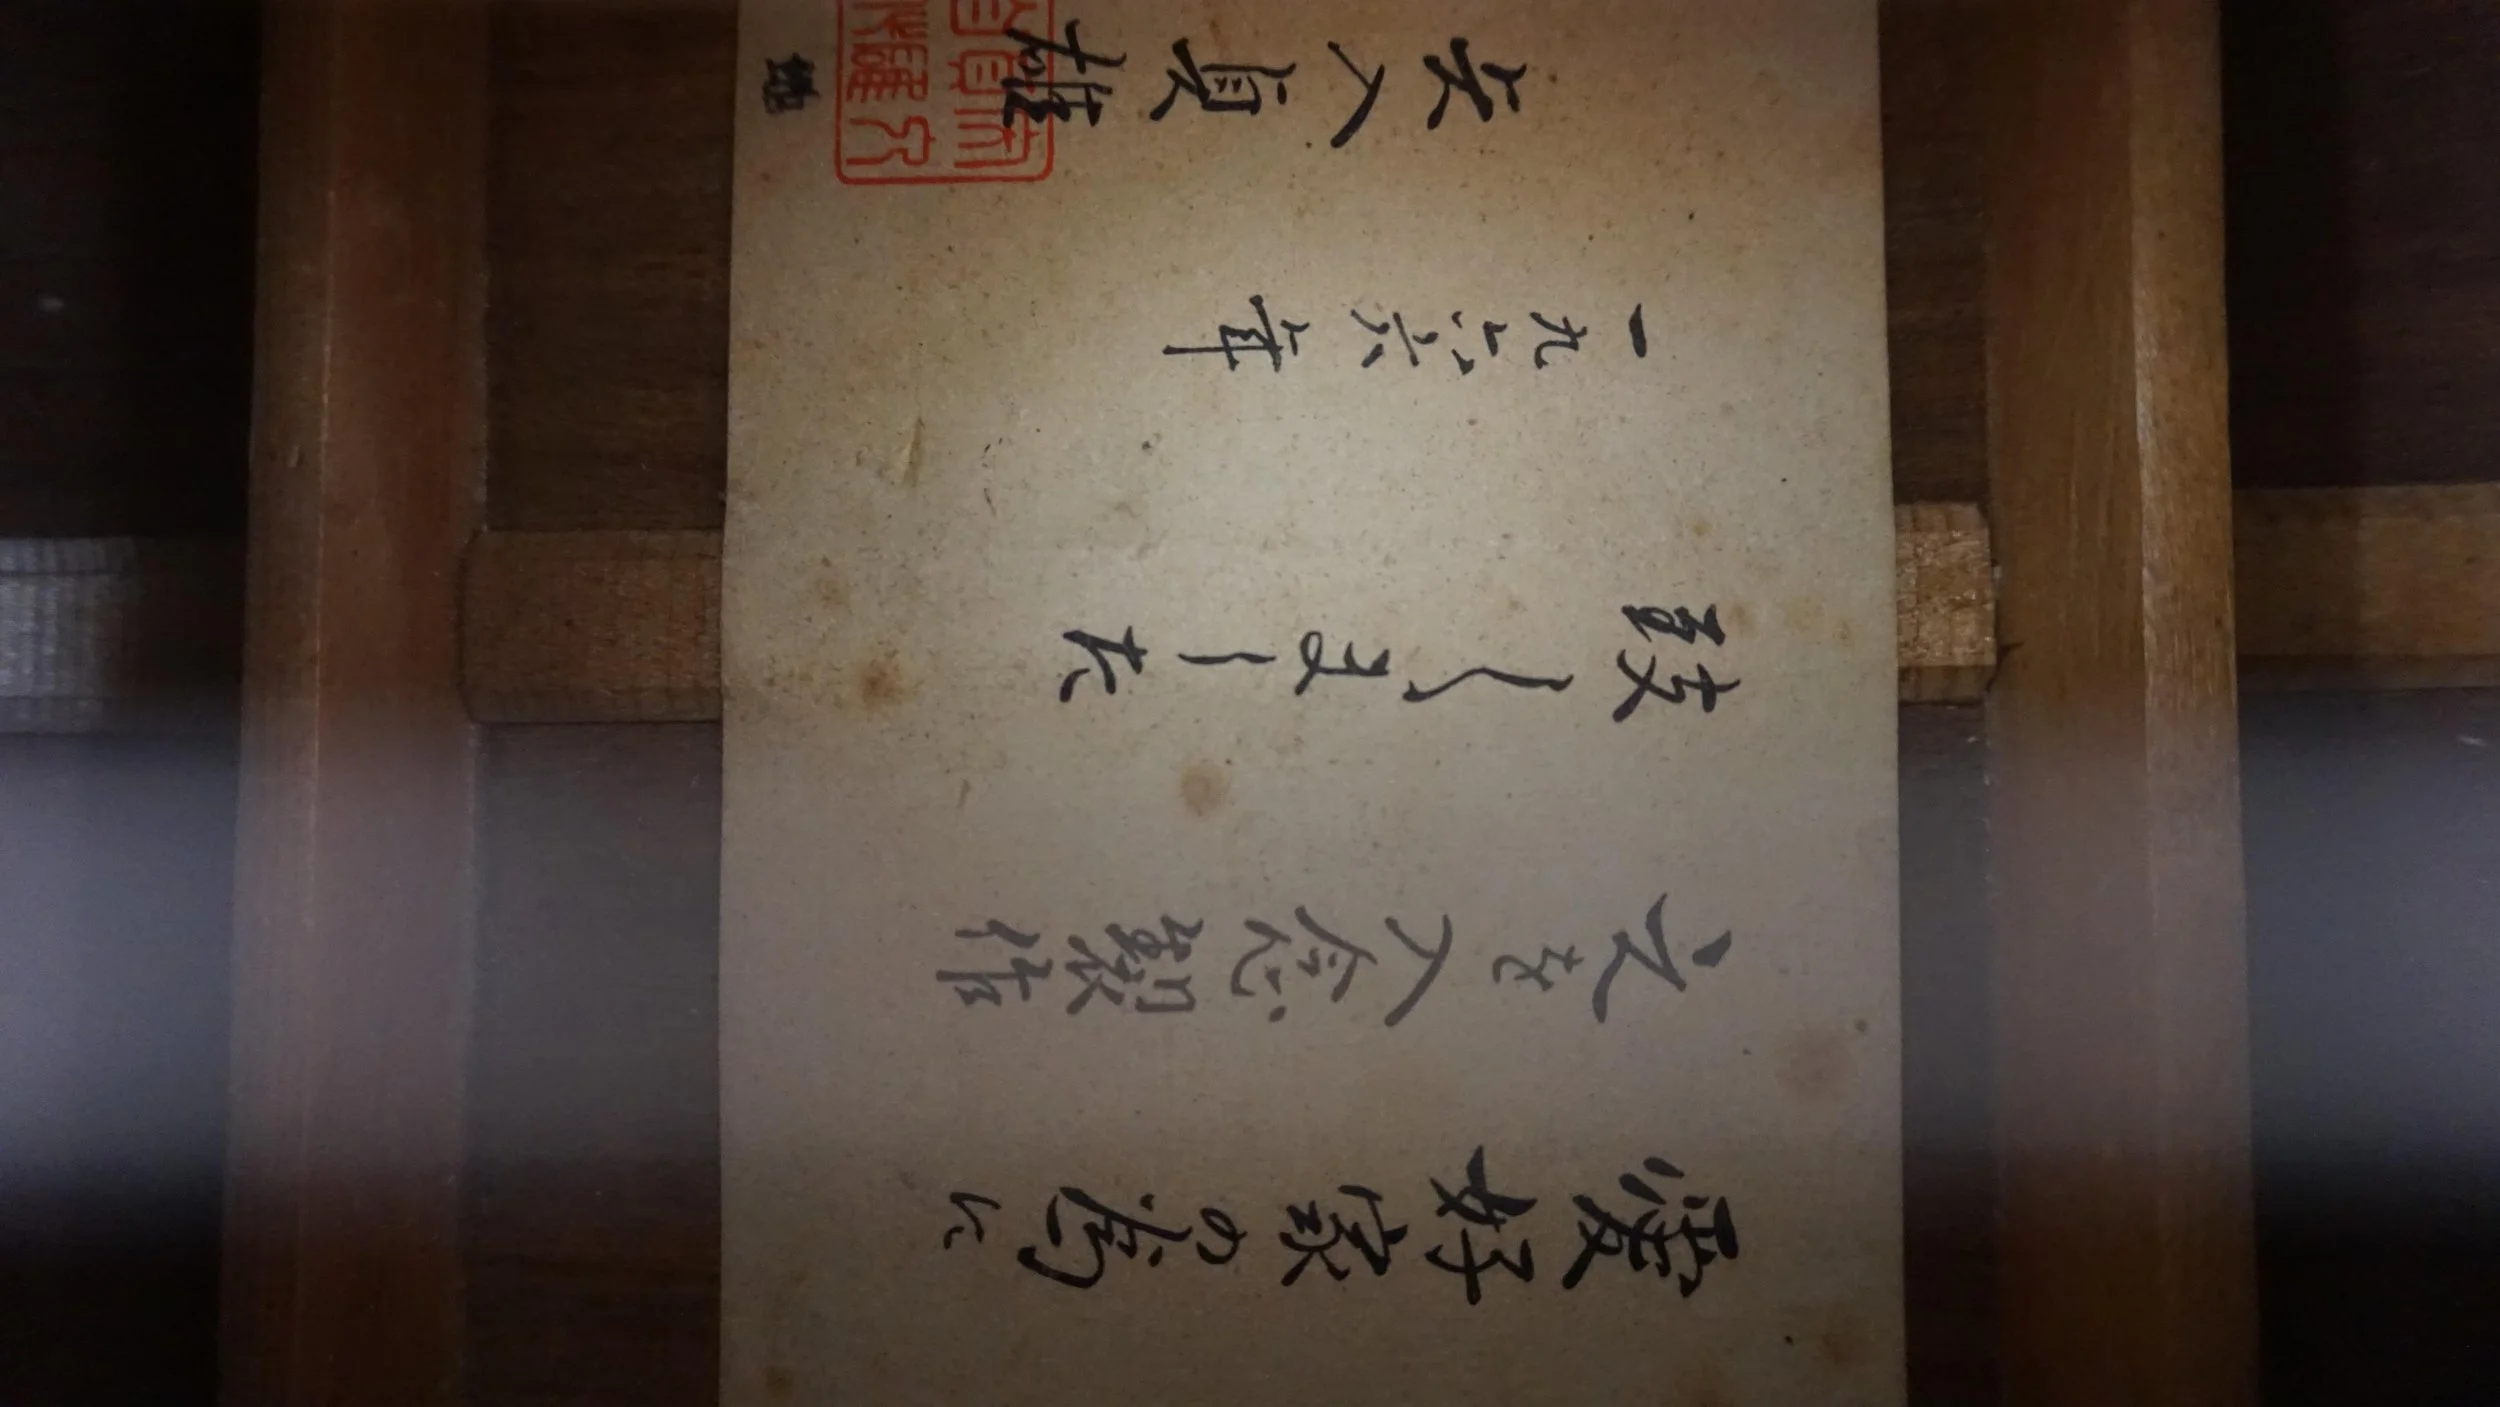 愛好家の為に
之を入念製作
致しました
一九六六年
矢入貞雄